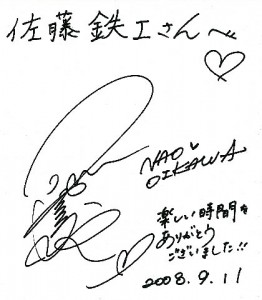 佐藤鉄工さんへ
NAO
OIKAWA
楽しい時間を
ありがとう
ございました!!
2008.9.11